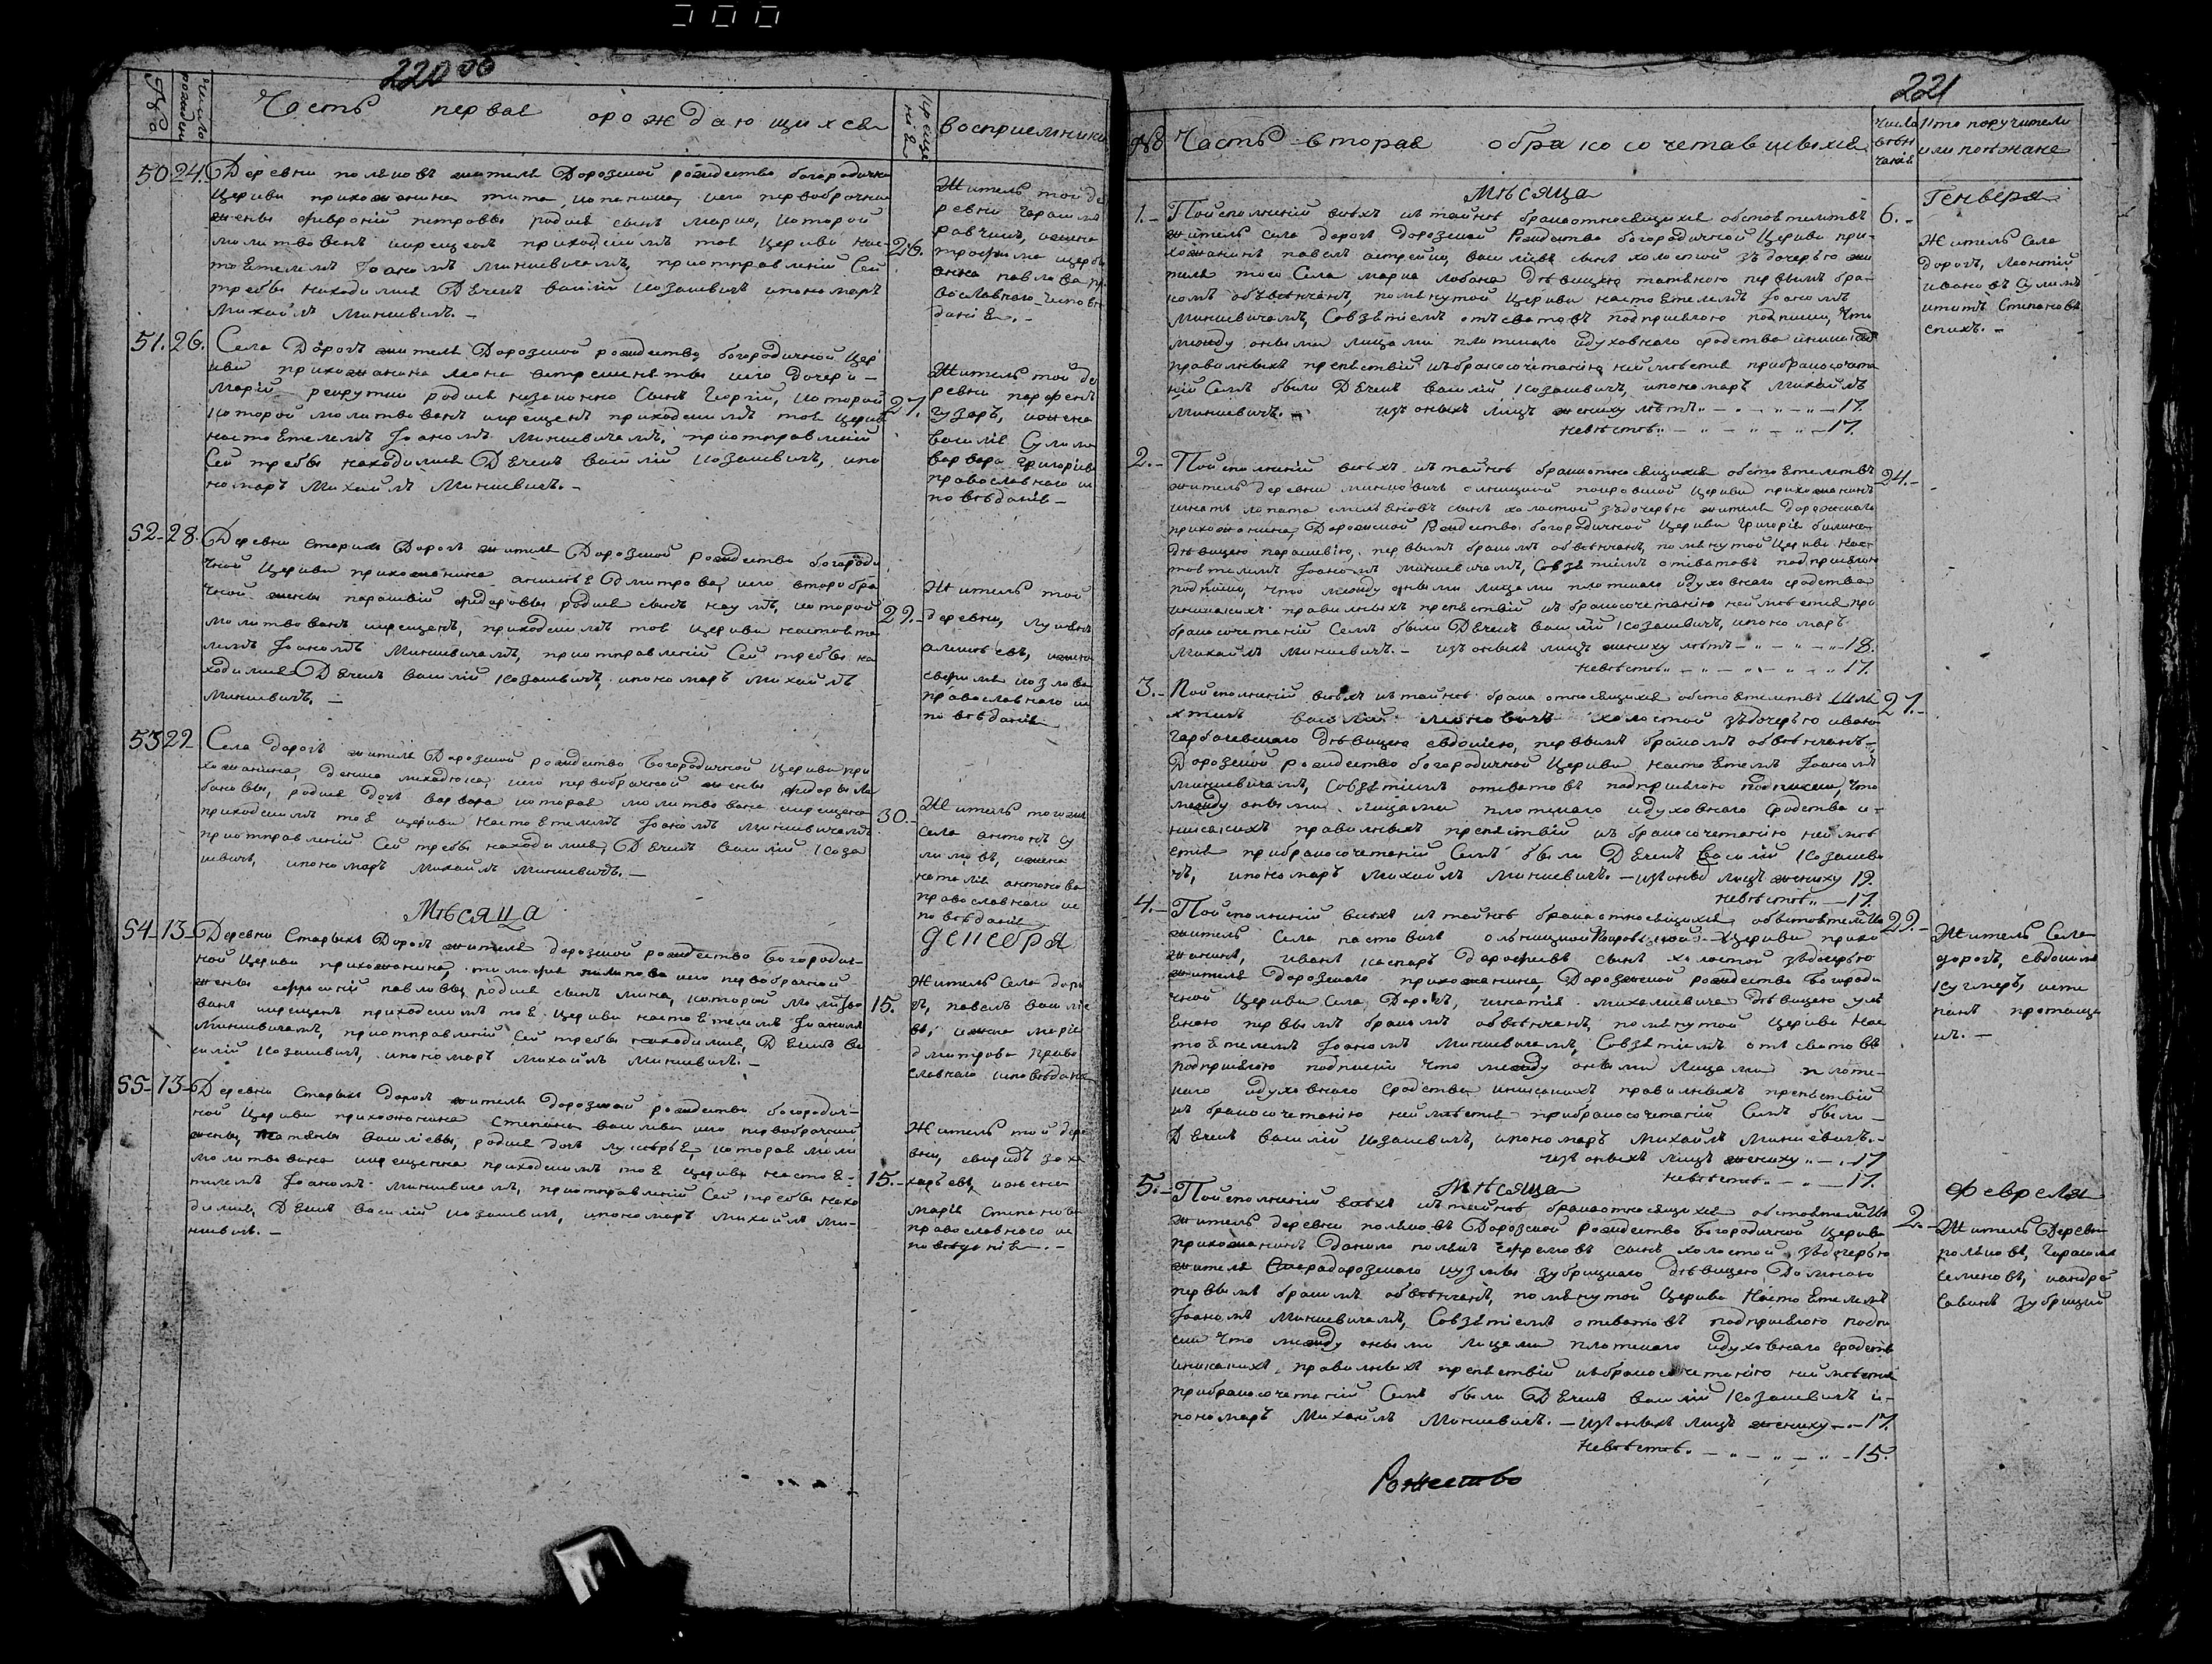 220 об
№
число рожден
Часть первая о рождающихся
креще
нія
восприемники
50 24. Деревни поликовъ жителя Дорозской рождество богородичной
Церкви прихожанина тита, его первобрачной
жены февроніи петровы родился сынъ марко, которой
молитвованъ икрещенъ приходскимъ тоя Церкви нас-
тоятелемъ Іоаномъ Минкевичемъ, приотправленій Сей
требы находились Дячекъ василій козакевичъ ипономаръ
Михайлъ Минкевичъ. –
26.
Житель той де
ревни герасимъ
павлова пра
вославнаго исповѣ
данія. –
51. 26. Села Дорогъ жителя Дорозской рождество богородичной Цер
кви прихожанина его дочери –
маріи рекрутки родился незаконно Сынъ Георгій, которой
которой молитвованъ икрещенъ приходскимъ тоя Церкви
настоятелемъ Іоаномъ Минкевичемъ, приотправленій
Сей требы находились Дячекъ василій козакевичъ, ипо
номаръ Михайлъ Минкевичъ. –
27.
Житель той де
ревни парфенъ
гузаръ, ижена
василія Сулима
варвара григорьева
православнаго ис
повѣданія –
52 – 28. Деревни Старыхъ Дорогъ жителя Дорозской рождество богороди
чной Церкви прихожанина алексѣя Дмитрова, его второбра
чной жены параскевіи федоровы родился сынъ наумъ, которой
молитвованъ икрещенъ, приходскимъ тоя церкви настояте
лемъ Іоаномъ Минкевичемъ, приотправленій Сей требы на
ходились Дячекъ василій козакевичъ, ипономаръ михайлъ
Минкевичъ. –
29. –
Житель той
деревни, лукьянъ
алексѣевъ, ижена
козлова
православнаго ис
повѣданія
53 29 Села дорогъ жителя Дорозской рождество Богородичной Церкви при
хожанина, дениса михадюка, его первобрачной жены федоры ла
бановы, родилась дочь варвара которая молитвована икрещена
приходскимъ тоя церкви настоятелемъ Іоаномъ Минкевичемъ
приотправленій Сей требы находились, Дячекъ василій Коза
кевичъ, ипономаръ михайлъ минкевичъ. –
30. –
Житель тогожъ
села антонъ су
лимовъ, ижена
наталія антонова
православнаго ис
повѣданія
Мѣсяца
декабря
54 – 13 – Деревни Старыхъ Дорогъ жителя дорозской рождество Богородич-
ной Церкви прихожанина, тимофея филипова его первобрачной
жены ефросиніи павловы, родился сынъ мина, которой молитво
ванъ икрещенъ приходскимъ тоя Церкви настоятелемъ Іоаномъ
Минкевичемъ, приотправленій Сей требы находились, Дячекъ ва
силій козакевичъ, ипономаръ михайлъ минкевичъ. –
15.
Житель Села доро
гъ, павелъ василіе
въ, ижена марія
дмитрова право
славнаго исповѣданія
55 – 13 – Деревни Старыхъ Дорогъ жителя дорозской рождество богородич-
ной Церкви прихожанина Степана василіева его первобрачной
жены, татьяны василіевы, родилась дочь лукерія, которая моли
молитвована икрещенна приходскимъ тоя Церкви настоя-
телемъ Іоаномъ Минкевичемъ, приотправленій Сей требы нахо
дились, Дячекъ василій козакевичъ, ипономаръ михайлъ Ми-
нкевичъ. –
15. –
Житель той дере
вни, свиридъ заха
харьевъ, ижена
марія Степанова
православнаго ис
повѣданія. –
221
№
Часть вторая о бракосочетавшихся
числа
вѣн
чанія
Кто поручители
или поѣзжане
Мѣсяца
Генваря
1. – Поисполненій всѣхъ ктайнѣ брака относящихся обстоятельствъ
житель села дорогъ дорозской Рождество богородичной Церкви при-
хожанинъ павелъ василіевъ сынъ холостой здочерью жи
теля того Села марка лобана дѣвицею татьяною первымъ бра-
комъ обвѣнчанъ, помянутой Церкви настоятелемъ Іоаномъ
Минкевичемъ, Совзятіемъ отъ сватовъ подприсягою подписки, Что
между оными лицами плотскаго идуховнаго сродства иникакихъ
правилныхъ препятствій къбракосочетанію неимѣется прибракосочета
ній Семъ были Дячекъ василій козакевичъ, ипономаръ михайлъ
Минкевичъ. – изъ оныхъ лицъ жениху лѣтъ – 17.
невѣстѣ – 17.
6. –
Житель Села
дорогъ, леонтій
ивановъ Сулимъ
ититъ Степановъ
2. – Поисполненій всѣхъ ктайнѣ брака относящихся обстоятельствъ
житель деревни минковичъ олницкой покровской Церкви прихожанинъ
игнатъ лопата емельяновъ сынъ холостой здочерью жителя дорозскаго
прихожанина Дорозской Рождество богородичной Церкви григорія билика
дѣвицею параскевіею, первымъ бракомъ обвѣнчанъ, помянутой Церкви нас-
тоятелемъ Іоаномъ минкевичемъ, Совзятіемъ отсватовъ подприсягою
подписки, что между оными лицами плотскаго идуховнаго сродства
иникакихъ правилныхъ препятствій къбракосочетанію неимѣется при
бракосочетаній Семъ были Дячекъ василій козакевичъ, ипономаръ
михайлъ минкевичъ. – изъ оныхъ лицъ жениху лѣтъ – 18.
невѣстѣ – 17.
24. –
3. – Поисполненій всѣхъ ктайнѣ брака относящихся обстоятельствъ шля
хтичъ василій холостой здочерью ивана
горбачевскаго дѣвицею евдокіею, первымъ бракомъ обвѣнчанъ –
Дорозской рождество богородичной Церкви настоятелемъ Іоаномъ
минкевичемъ, Совзятіемъ отсватовъ подприсягою подписки, что
между оными лицами плотскаго идуховнаго сродства и-
никакихъ правилныхъ препятствій къ бракосочетанію неимѣ
ется прибракосочетаній Семъ были Дячекъ василій Козакеви
чъ, ипономаръ михайлъ минкевичъ. – изъ оныхъ лицъ жениху 19.
невѣстѣ – 17.
27. –
4. – Поисполненій всѣхъ ктайнѣ брака относящихся обстоятельствъ
житель Села пастовичъ олницкой Покровской Церкви прихо
жанинъ, иванъ каспаръ дорофѣевъ сынъ холостой здочерью
жителя дорозскаго прихожанина Дорозской рождество Богороди
чной Церкви Села Дорогъ, игнатія михалкевича дѣвицею уля
яною первымъ бракомъ обвѣнчанъ, помянутой Церкви нас
тоятелемъ Іоаномъ минкевичемъ, Совзятіемъ отъ сватовъ
подприсягою подписки что между оными лицами плотс-
каго идуховнаго сродства иникакихъ правилныхъ препятствій
къ бракосочетанію неимѣется прибракосочетаній Семъ были –
Дячекъ василій козакевичъ, ипономаръ михайлъ минкевичъ. –
изъ оныхъ лицъ жениху – 17
невѣстѣ – 17.
29. –
Житель Села
дорогъ, евдокимъ
кучмеръ, исте
панъ протащи
къ. –
Мѣсяца
февраля
5. – Поисполненій всѣхъ ктайнѣ брака относящихся обстоятельствъ
житель деревни поликовъ Дорозской рождество Богородичной Церкви
прихожанинъ Данило полякъ ефремовъ сынъ холостой здочерью
жителя Стародорозскаго кузьмы зубрицкаго дѣвицею Домною
первымъ бракомъ обвѣнчанъ, помянутой Церкви Настоятелемъ
Іоаномъ Минкевичемъ, Совзятіемъ отсватовъ подприсягою подпи
ски что между оными лицами плотскаго идуховнаго сродства
иникакихъ правилныхъ препятствій къбракосочетанію неимѣется
прибракосочетаній Семъ были Дячекъ василій Козакевичъ и-
пономаръ Михайлъ Минкевичъ. – изъ оныхъ лицъ жениху – 17.
невѣстѣ – 15.
2. –
Житель Деревни
поликовъ, герасимъ
семеновъ, иандрей
савинъ зубрицкій
Рожество